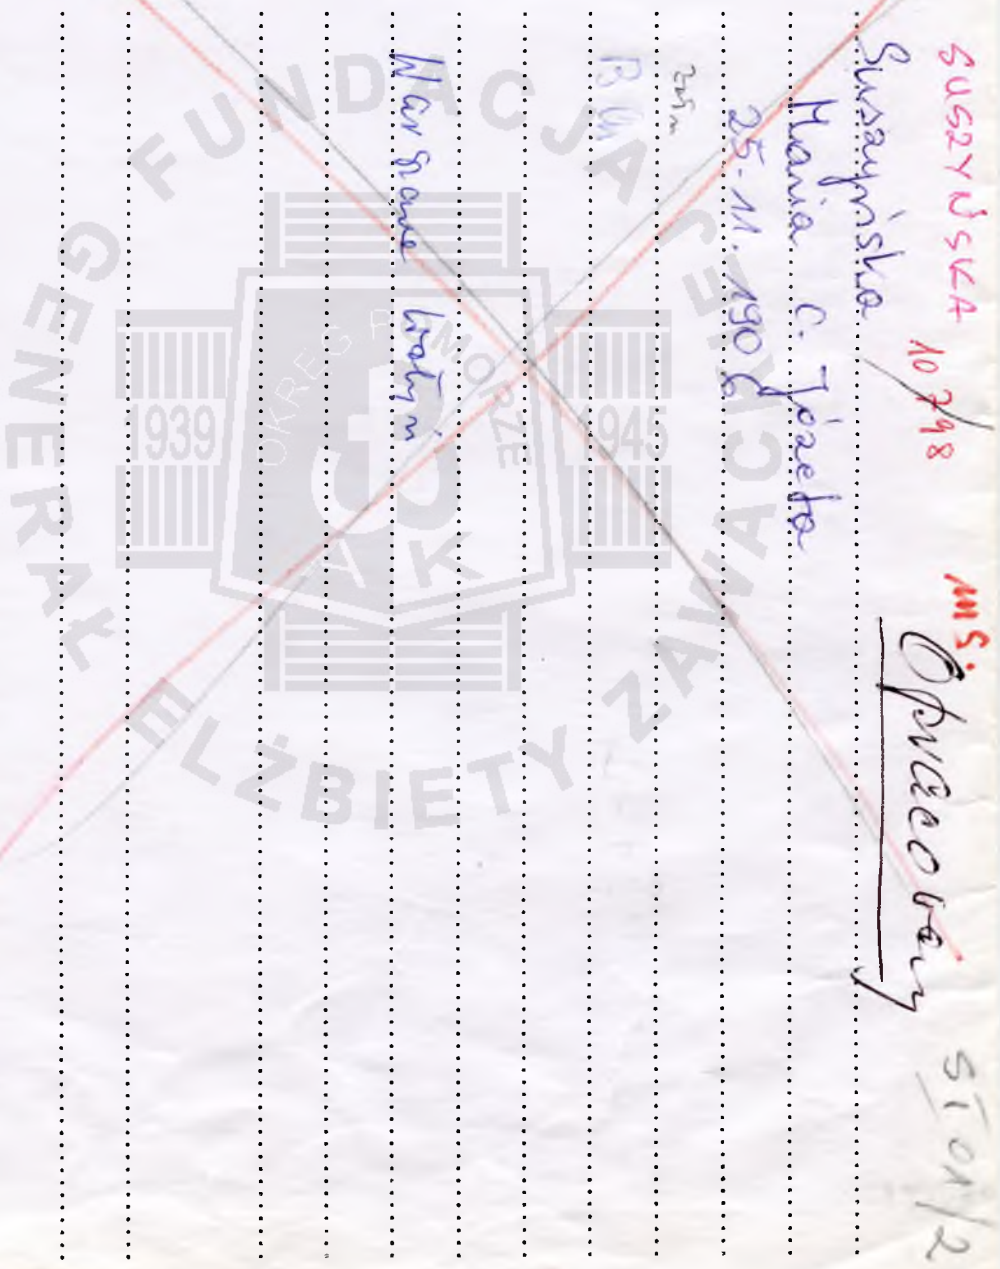 SUSZYŃSKA 10798 ms. Opracowany ST 01/2
Suszyńska
Maria c. Józefa
25.11.1906
Warszawa Wołyń
FUNDACJA GENERAŁ ELŻBIETY ZAWACKIEJ
1939 1945
OKRĘG POMORZE
AK